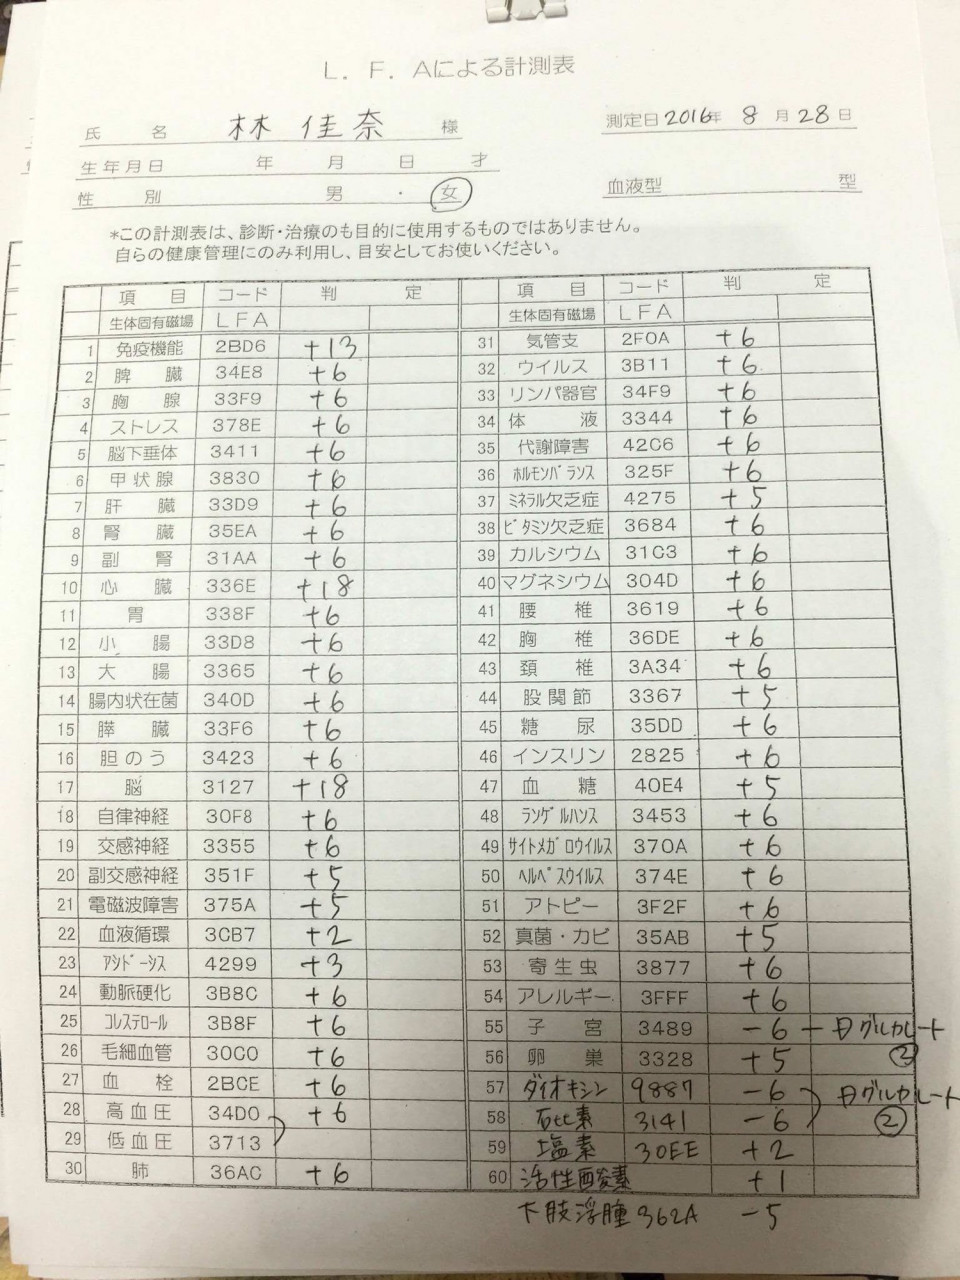 L．F．Aによる計測表
氏　名　林 佳奈　様　測定日2016年 8月28日
生年月日　年　月　日　才
性　別　男・女　血液型　型
*この計測表は、診断・治療のも目的に使用するものではありません。
自らの健康管理にのみ利用し、目安としてお使いください。
項　目　コード　判　定　項　目　コード　判　定
生体固有磁場　LFA　生体固有磁場　LFA
1 免疫機能 2BD6 +13 31 気管支 2F0A +6
2 脾臓 34E8 +6 32 ウイルス 3B11 +6
3 胸腺 33F9 +6 33 リンパ器官 34F9 +6
4 ストレス 378E +6 34 体液 3344 +6
5 脳下垂体 3411 +6 35 代謝障害 42C6 +6
6 甲状腺 3830 +6 36 ホルモンバランス 325F +6
7 肝臓 33D9 +6 37 ミネラル欠乏症 4275 +5
8 腎臓 35EA +6 38 ビタミン欠乏症 3684 +6
9 副腎 31AA +6 39 カルシウム 31C3 +6
10 心臓 336E +18 40 マグネシウム 304D +6
11 胃 338F +6 41 腰椎 3619 +6
12 小腸 33D8 +6 42 胸椎 36DE +6
13 大腸 3365 +6 43 頚椎 3A34 +6
14 腸内状在菌 340D +6 44 股関節 3367 +5
15 膵臓 33F6 +6 45 糖尿 35DD +6
16 胆のう 3423 +6 46 インスリン 2825 +6
17 脳 3127 +18 47 血糖 40E4 +5
18 自律神経 30F8 +6 48 ランゲルハンス 3453 +6
19 交感神経 3355 +6 49 サイトメガロウイルス 370A +6
20 副交感神経 351F +5 50 ヘルペスウイルス 374E +6
21 電磁波障害 375A +5 51 アトピー 3F2F +6
22 血液循環 3CB7 +2 52 真菌・カビ 35AB +5
23 アシドーシス 4299 +3 53 寄生虫 3877 +6
24 動脈硬化 3B8C +6 54 アレルギー 3FFF +6
25 コレステロール 3B8F +6 55 子宮 3489 -6 グルカレート ②
26 毛細血管 30C0 +6 56 卵巣 3328 +5
27 血栓 2BCE +6 57 ダイオキシン 9887 -6 グルカレート ②
28 高血圧 34D0 +6 58 砒素 3141 -6
29 低血圧 3713 59 塩素 30EE +2
30 肺 36AC +6 60 活性酸素 +1
下肢浮腫 362A -5